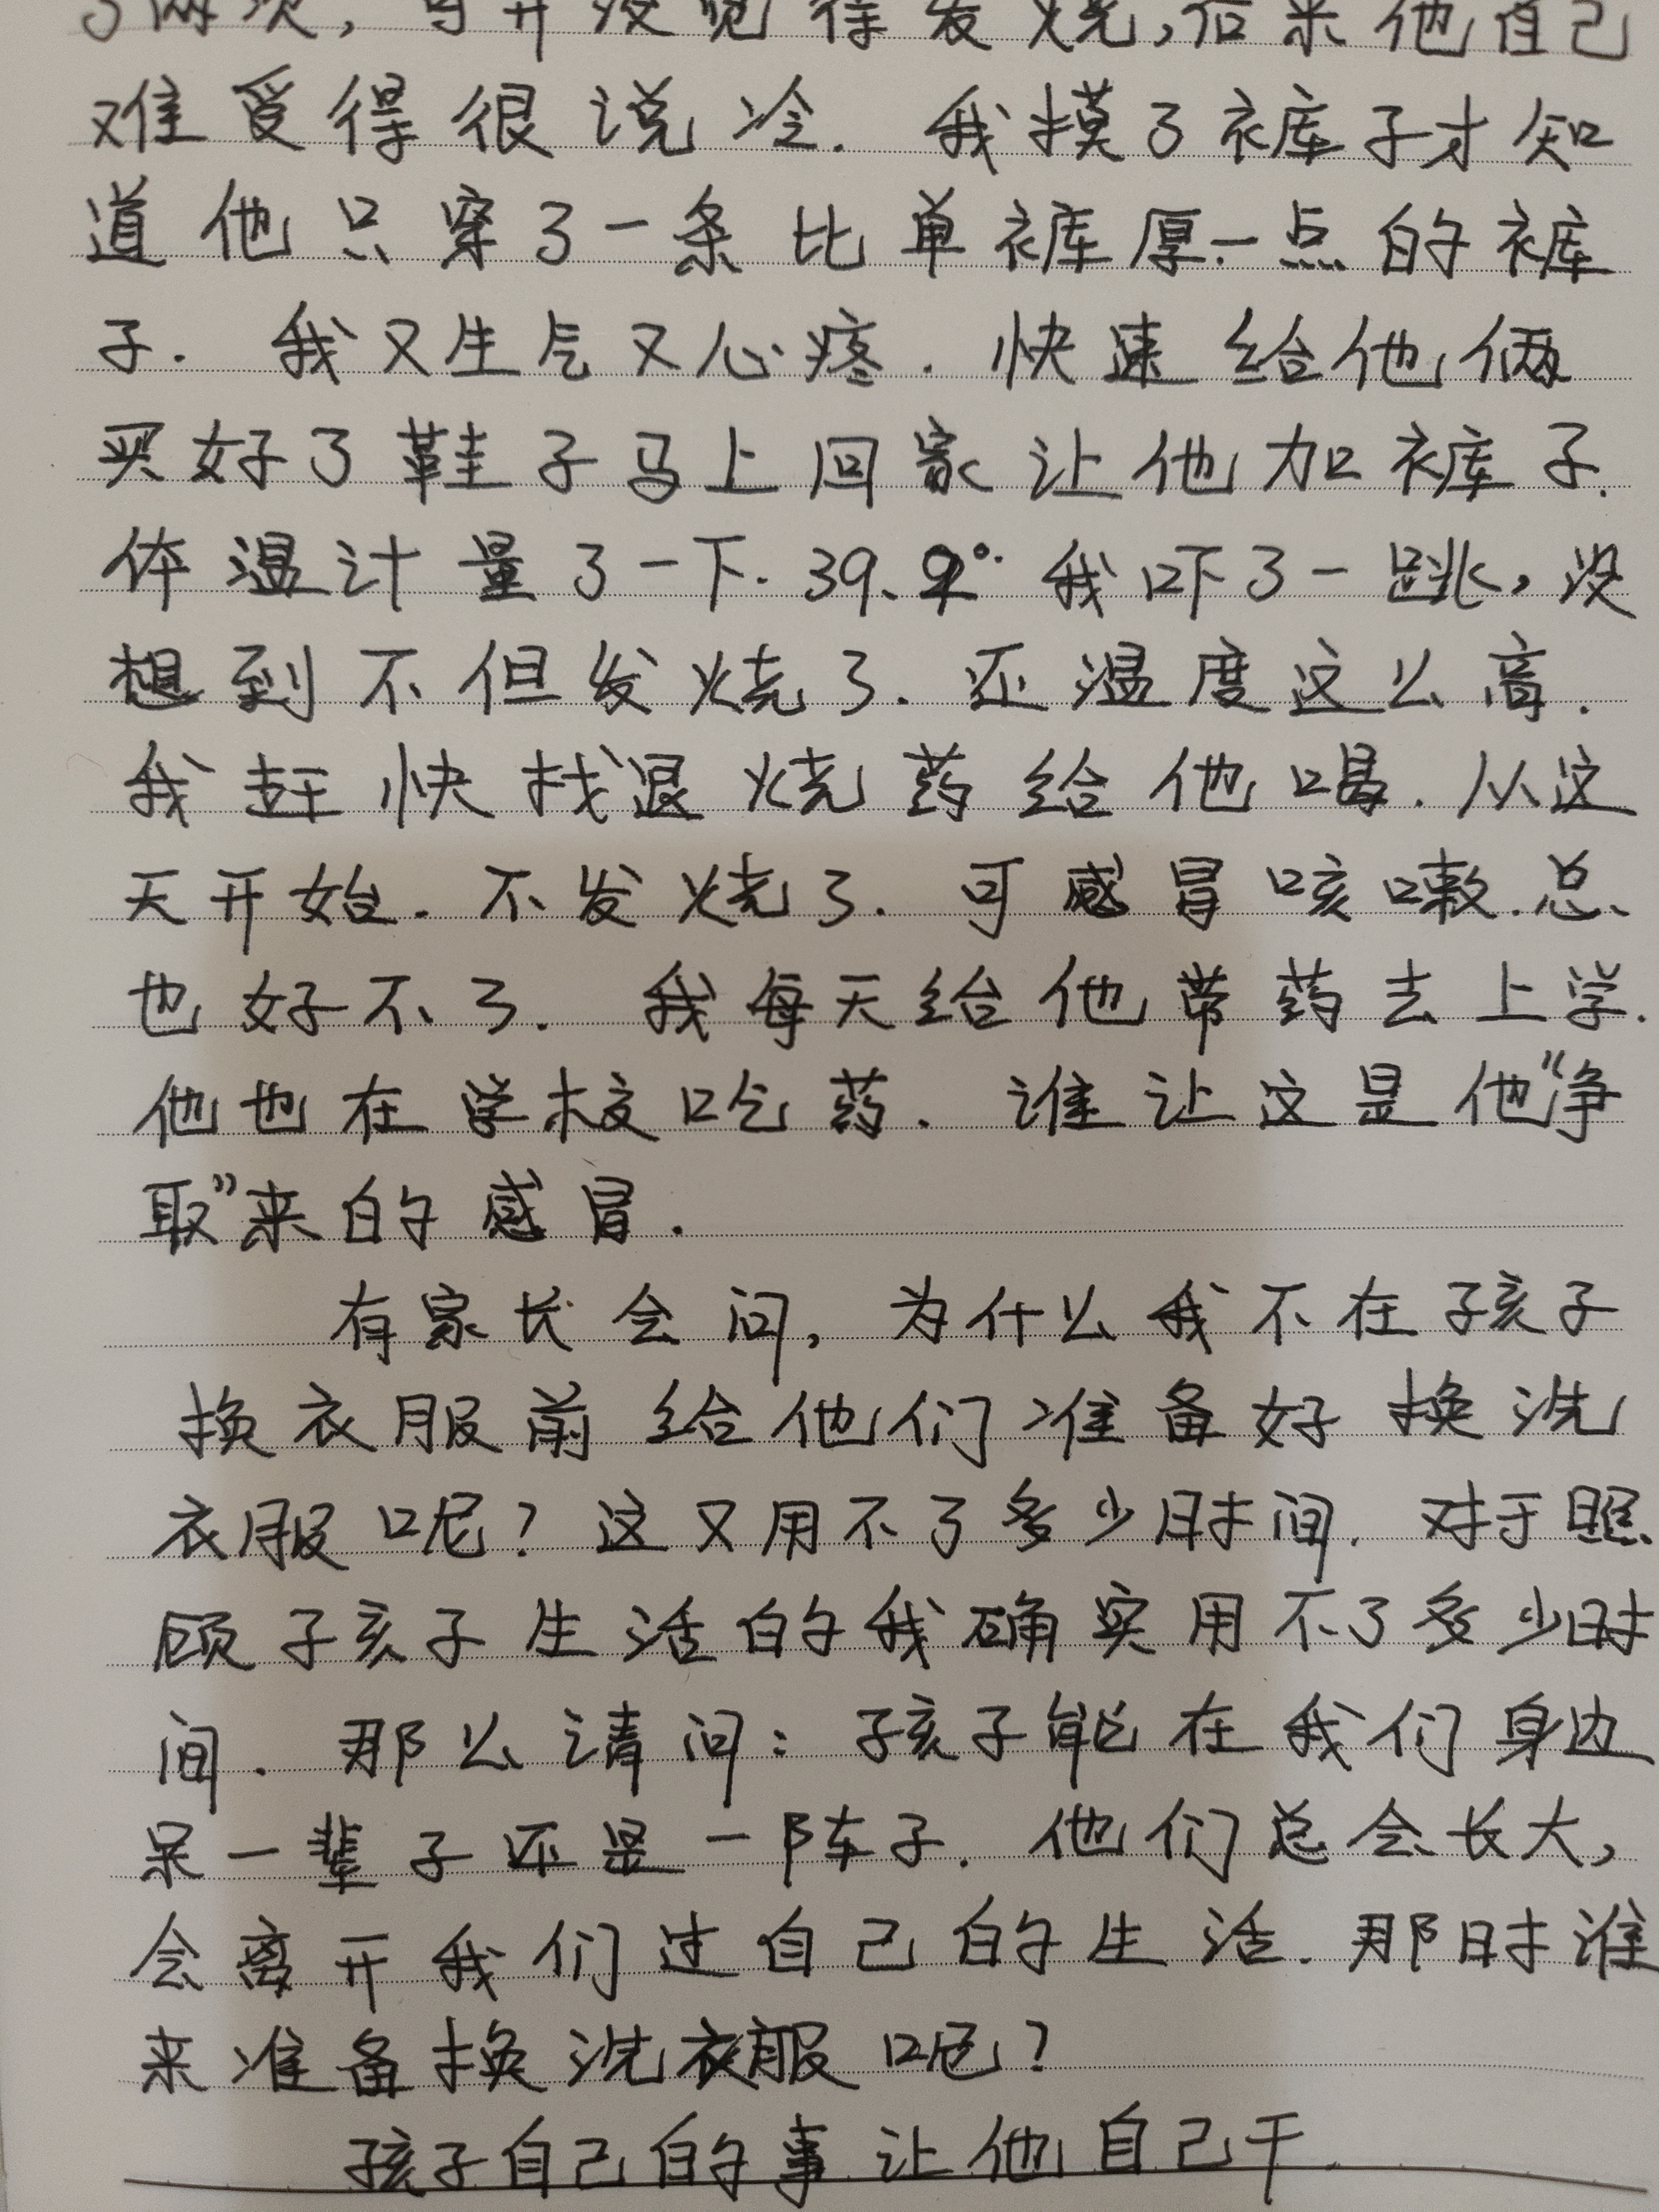 了两次,可并没觉得发烧,后来他自己
难受得很说冷. 我摸了裤子才知
道他只穿了一条比单裤厚一点的裤
子. 我又生气又心疼. 快速给他俩
买好了鞋子马上回家让他加裤子.
体温计量了一下. 39.2° 我吓了一跳,没
想到不但发烧了. 还温度这么高.
我赶快找退烧药给他喝. 从这
天开始. 不发烧了. 可感冒咳嗽.总
也好不了. 我每天给他带药去上学.
他也在学校吃药. 谁让这是他“争
取”来的感冒.
有家长会问, 为什么我不在孩子
换衣服前给他们准备好换洗
衣服呢? 这又用不了多少时间. 对于照
顾孩子生活的我确实用不了多少时
间. 那么请问: 孩子能在我们身边
呆一辈子还是一阵子. 他们总会长大,
会离开我们过自己的生活. 那时谁
来准备换洗衣服呢?
孩子自己的事让他自己干.